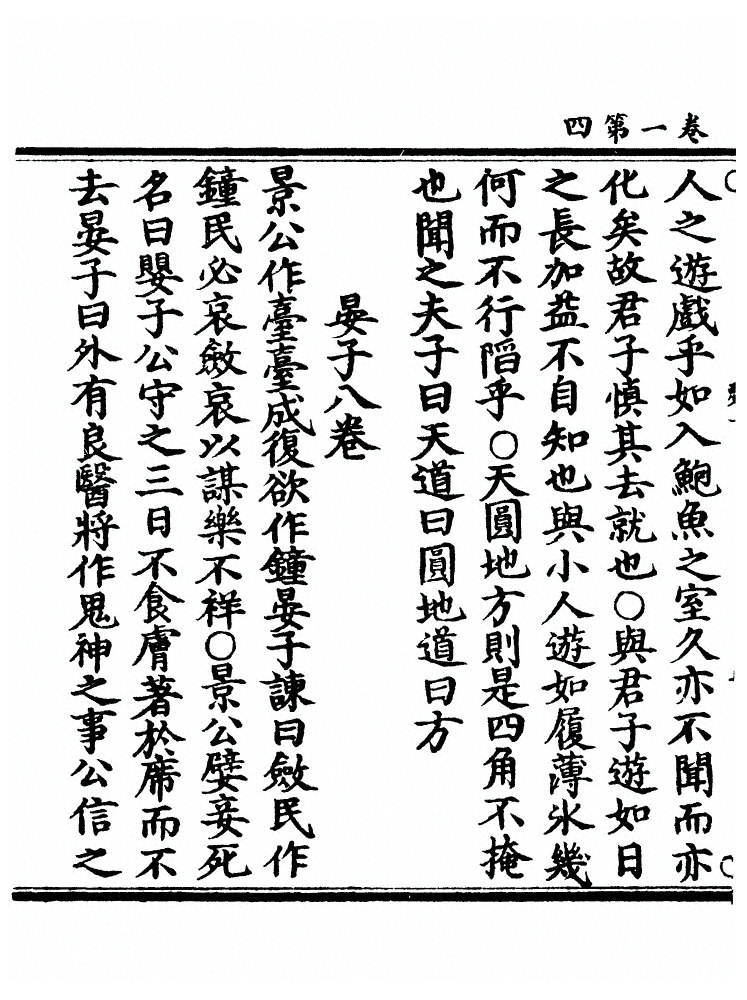 卷一第四
人之遊戲乎如入鮑魚之室久亦不聞而亦
化矣故君子慎其去就也○與君子遊如日
之長加益不自知也與小人遊如履薄氷幾
何而不行陷乎○天圓地方則是四角不掩
也聞之夫子曰天道曰圓地道曰方
晏子八卷
景公作臺臺成復欲作鐘晏子諫曰斂民作
鐘民必哀斂哀以謀樂不祥○景公嬖妾死
名曰嬰子公守之三日不食膚著於席而不
去晏子曰外有良醫將作鬼神之事公信之